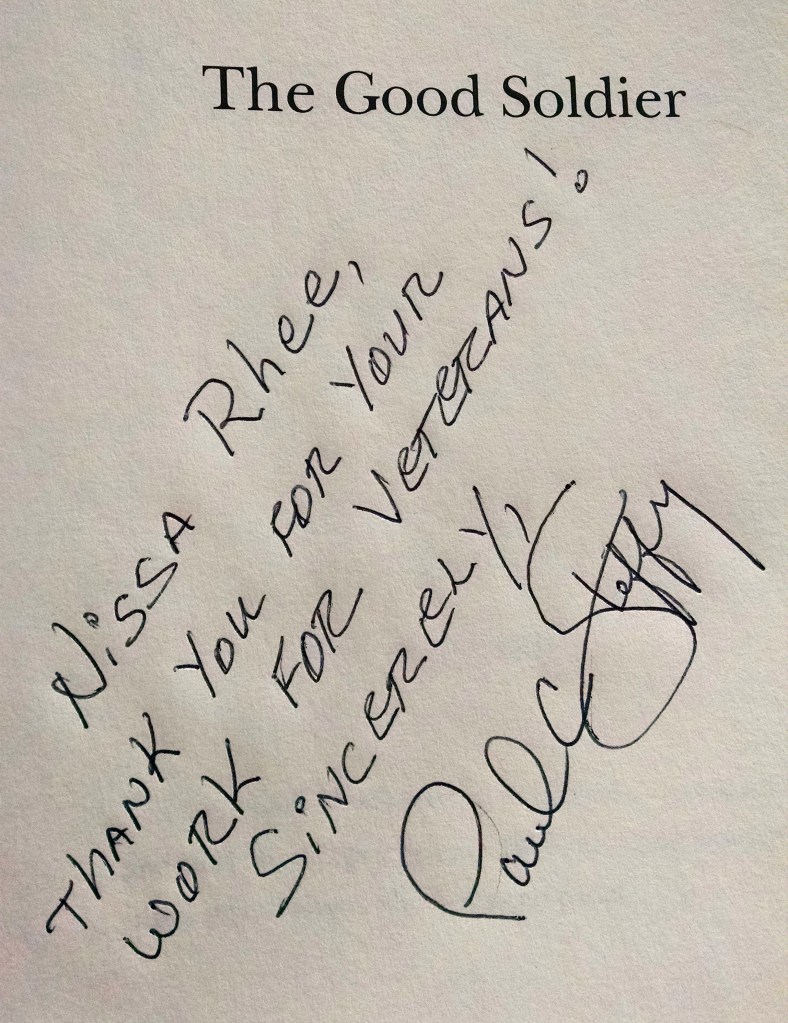 The Good Soldier
Nissa Rhee,
THANK YOU FOR YOUR
WORK FOR VETERANS!
SINCERELY,
Paul C Steffy